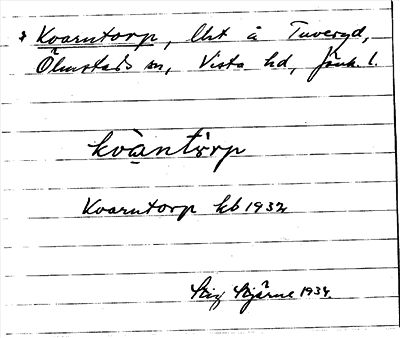 Kvarntorp, lht å Tuveryd,
Ölmstads sn, Vista hd, Jönk. l.
kvàǹtörp
Kvarntorp kb 1932
Stig Stjärne 1934.